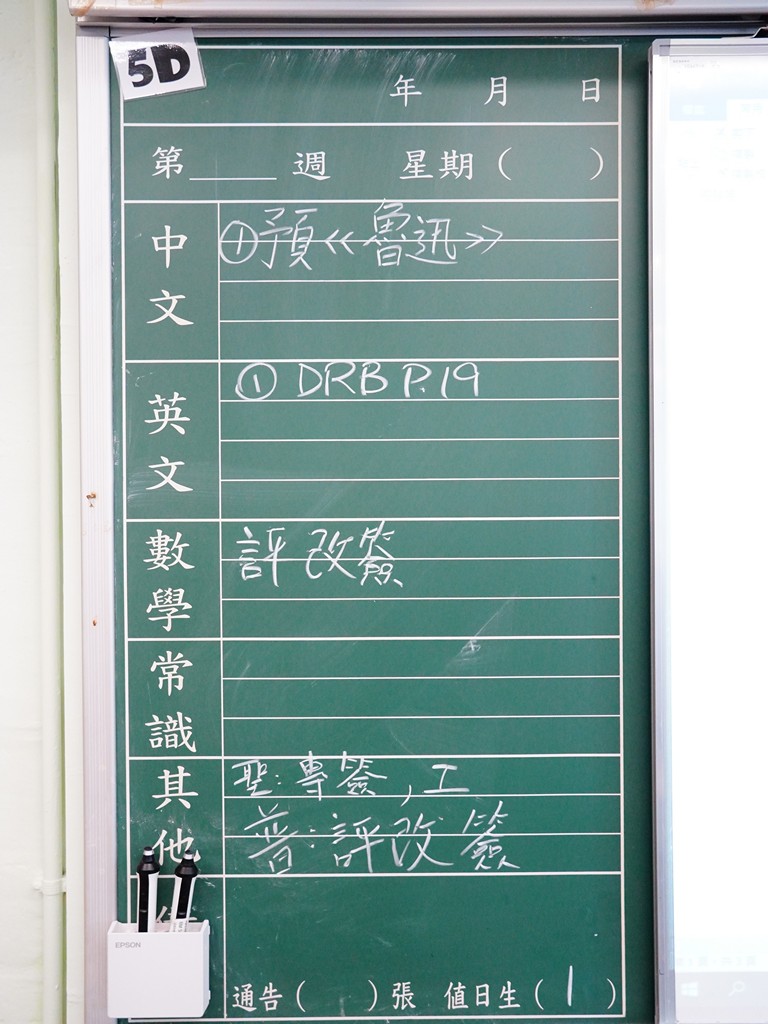 5D
年 月 日
第____週 星期( )
中文
①預《魯迅》
英文
① DRB P.19
數學
評改簽
常識
其他
聖:專簽,工
普:評改簽
EPSON
通告( )張 值日生(1)